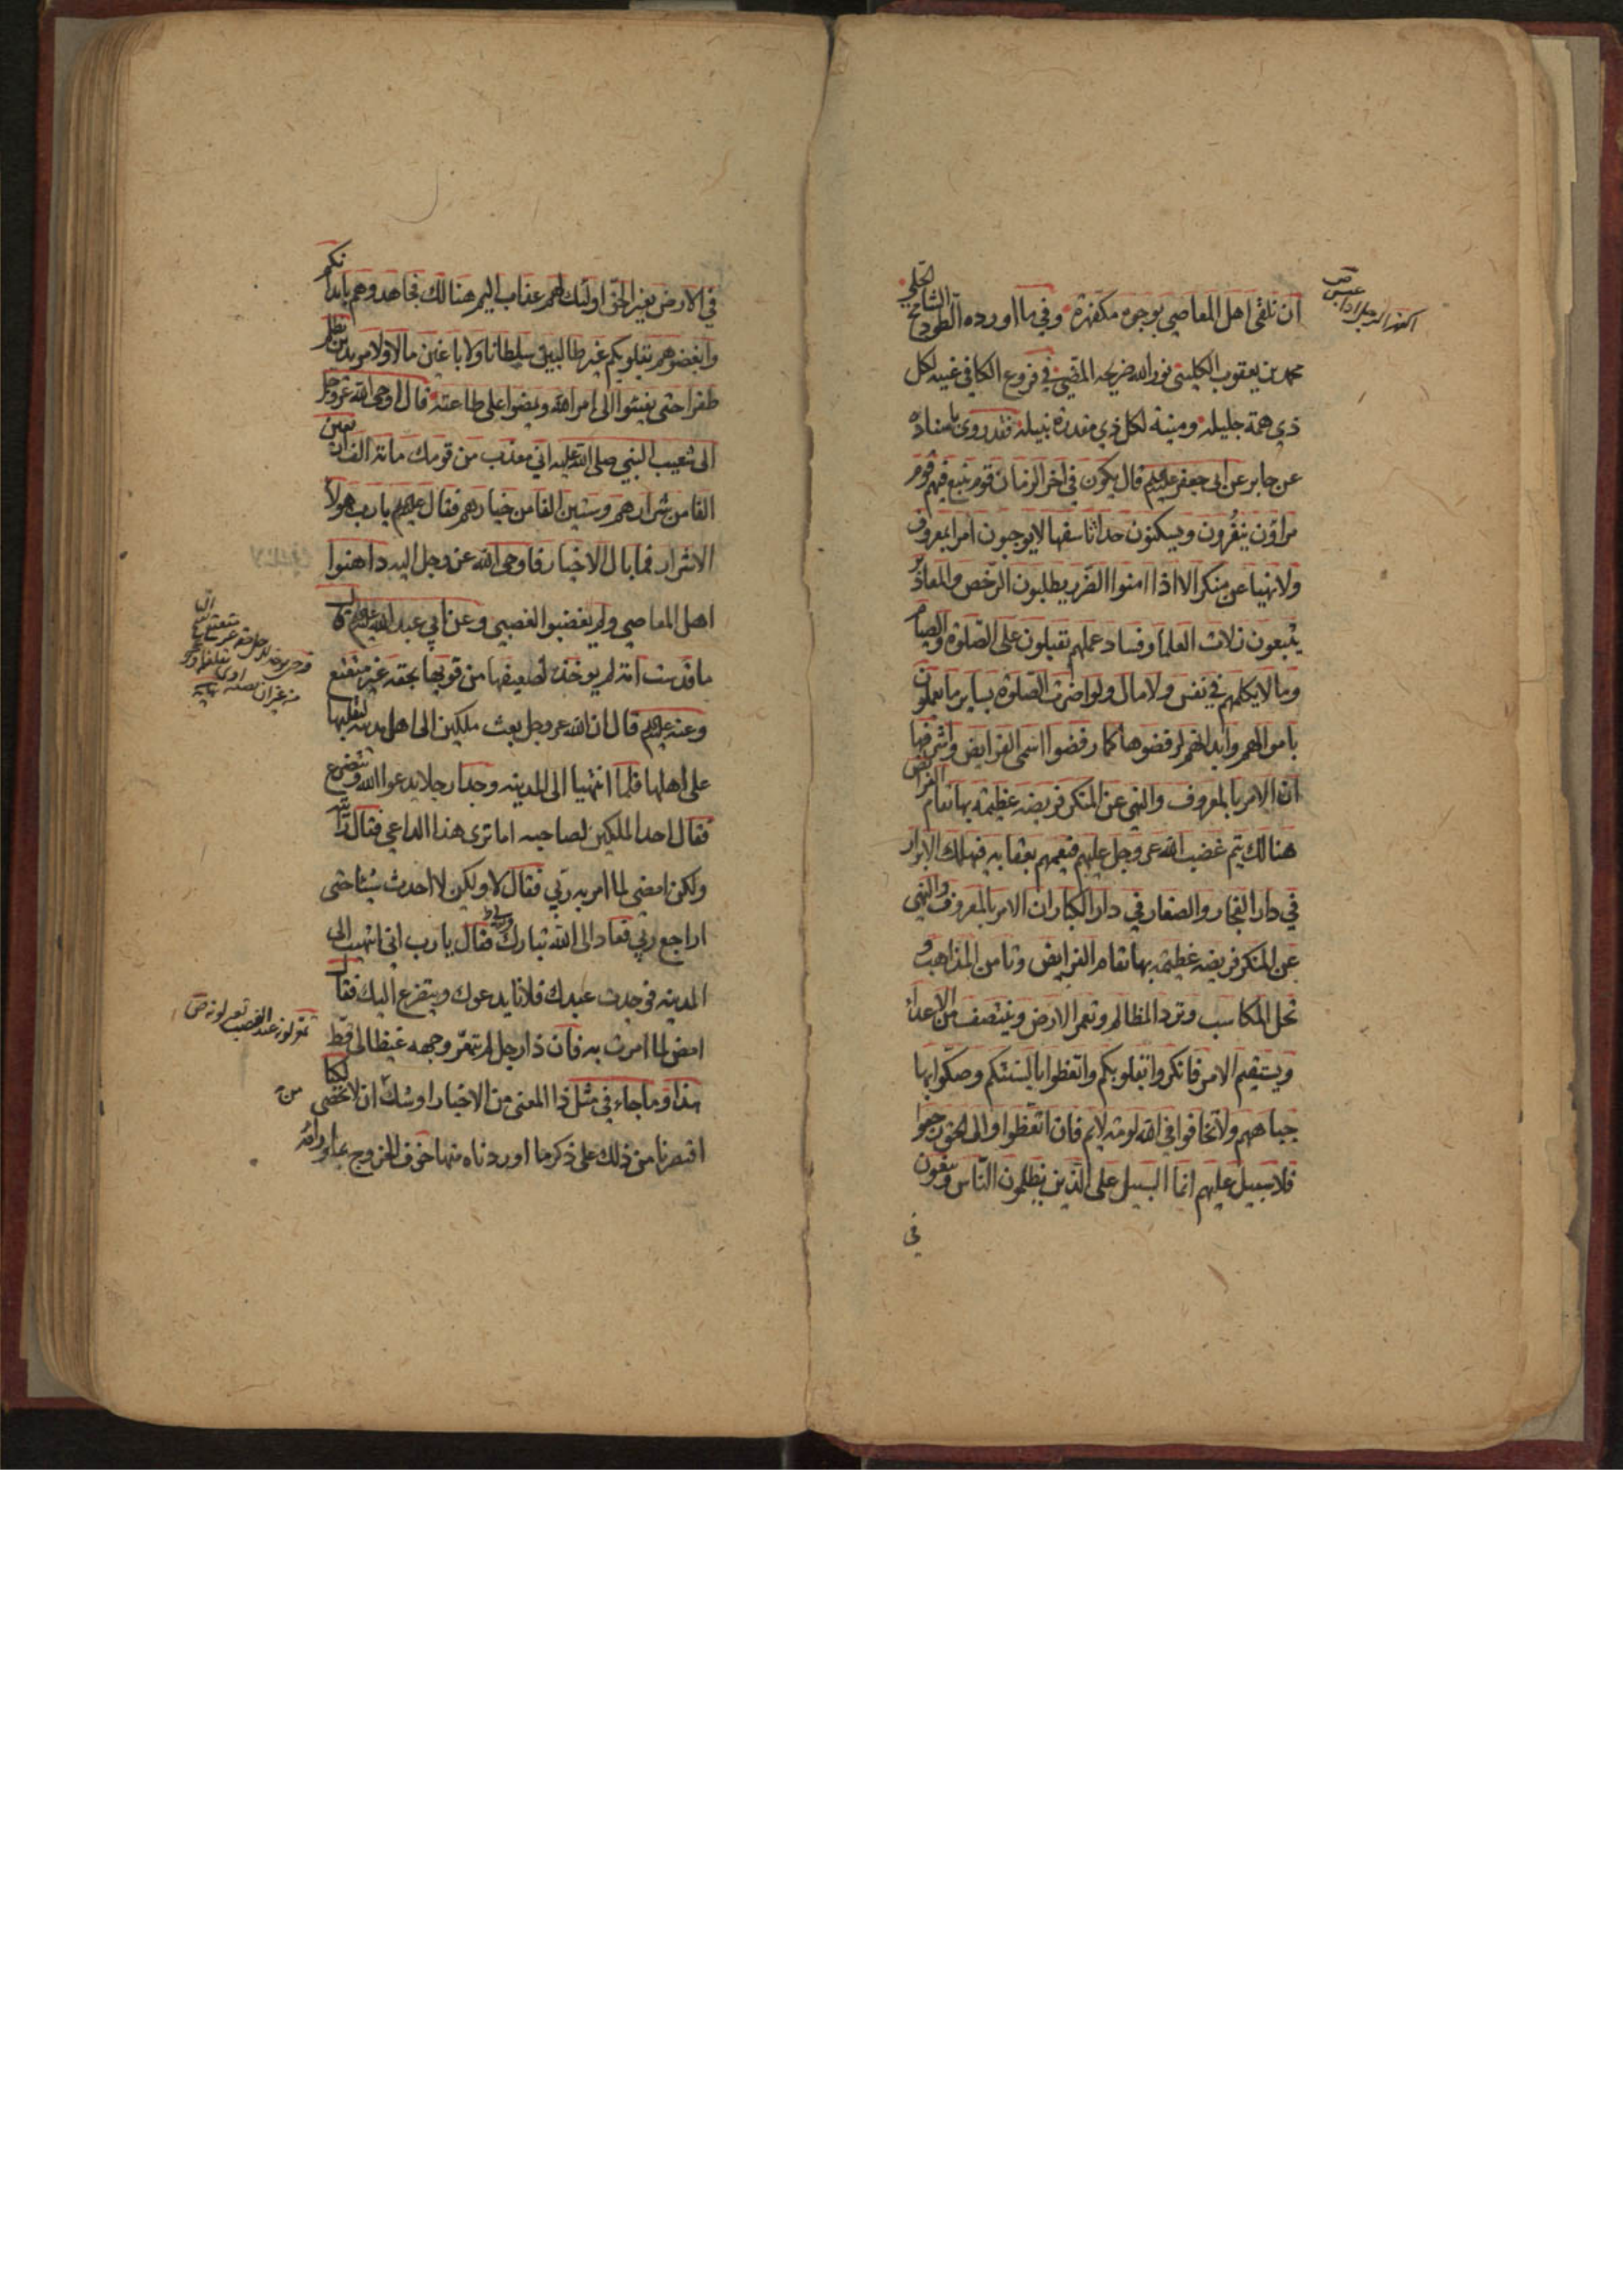 ان نلقى اهل المعاصي بوجوه مكفهرة وفي ما اورده الطود الشامخ
محمد بن يعقوب الكليني نور الله ضريحه المضيئ في فروع الكافي غنيه لكل
ذي همة جليله ومنية لكل ذي مقدرة نبيله فقد روى باسناده
عن جابر عن ابى جعفر عليه السلم قال يكون في اخر الزمان قوم يتبع فيهم قوم
مراؤن يتقرون ويسكنون حداثا سفها لا يوجبون امرا بمعروف
ولا نهيا عن منكر الا اذا امنوا الضرر يطلبون الرخص والمعاذير
يتبعون زلات العلما وفساد عملهم يقبلون على الصلوة والصيام
وما لا يكلمهم في نفس ولا مال ولو اضرت الصلوة بساير ما يعملون
باموالهم وابدانهم لرفضوها كما رفضوا اسمى الفرايض واشرفها
ان الامر بالمعروف والنهى عن المنكر فريضه عظيمة بها تقام الفرايض
هنالك يتم غضب الله عز وجل عليهم فيعمهم بعقابه فيهلك الابرار
في دار الفجار والصغار في دار الكبار ان الامر بالمعروف والنهى
عن المنكر فريضه عظيمة بها تقام الفرايض وتامن المذاهب و
تحل المكاسب وترد المظالم وتعمر الارض وينتصف من الاعداء
ويستقيم الامر فانكروا بقلوبكم والفظوا بالسنتكم وصكوا بها
جباههم ولا تخافوا في الله لومة لايم فان اتعظوا والى الحق رجعوا
فلا سبيل عليهم انما السبيل على الذين يظلمون الناس ويبغون
في
في الارض بغير الحق اولئك لهم عذاب اليم هنالك فجاهدوهم بابدانكم
وابغضوهم بقلوبكم غير طالبين سلطانا ولا باغين مالا ولا مريدين بظلم
ظفرا حتى يفيئوا الى امر الله ويمضوا على طاعته قال اوحى الله عز وجل
الى شعيب النبي صلى الله عليه اني معذب من قومك مائة الف اربعين
الفا من شرارهم وستين الفا من خيارهم فقال عليه السلم يا رب هولاء
الاشرار فما بال الاخيار فاوحى الله عز وجل اليه داهنوا
اهل المعاصي ولم يغضبوا لغضبي وعن ابي عبد الله عليه السلم قال
ما قدست امة لم يوخذ لضعيفها من قويها بحقه غير متعتع
وعنه عليه السلم قال ان الله عز وجل بعث ملكين الى اهل مدينه ليقلباها
على اهلها فلما انتهيا الى المدينه وجدا رجلا يدعو الله ويتضرع
فقال احد الملكين لصاحبه اما ترى هذا الداعي فقال رايته
ولكن امضى لما امر به ربي فقال لا ولكن لا احدث شيئا حتى
اراجع ربي فعاد الى الله تبارك وتعالى فقال يا رب اني انتهيت الى
المدينه فوجدت عبدك فلانا يدعوك ويتضرع اليك فقال
امض لما امرت به فان ذا رجل لم يتمعر وجهه غيظا لى قط
هذا وما جاء في مثل ذا المعنى من الاخبار اوشك ان لا يحصى لكنا
اقتصرنا من ذلك على ذكر ما اوردناه منها خوف الخروج عما